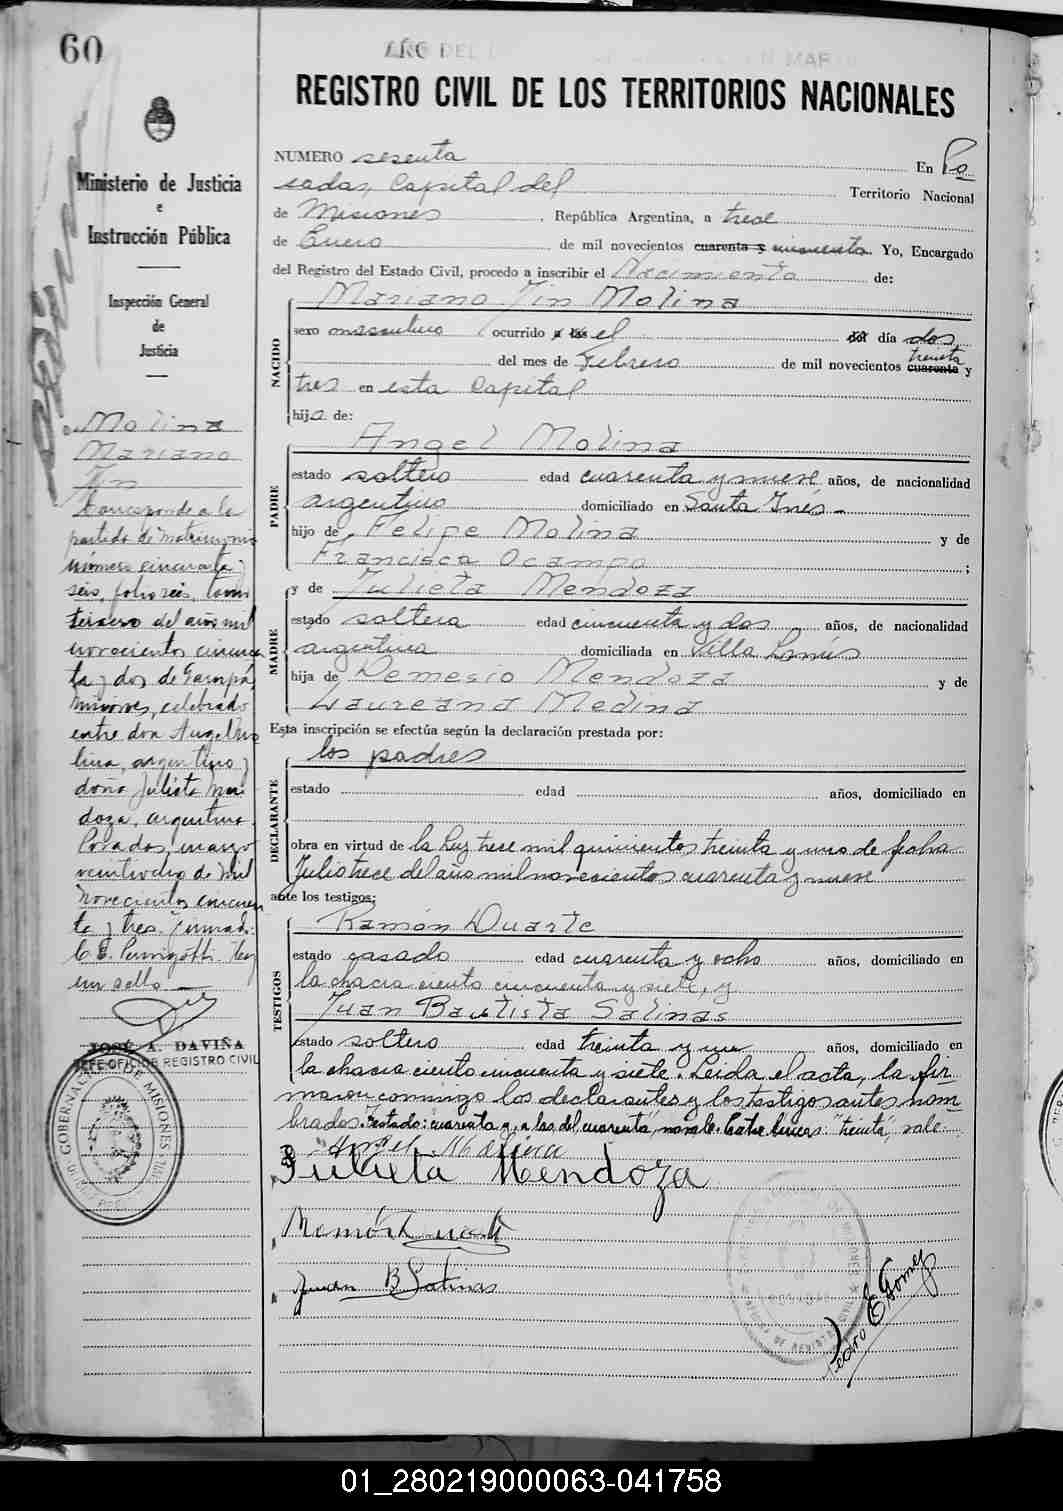 60
AÑO DEL L
N MAR
REGISTRO CIVIL DE LOS TERRITORIOS NACIONALES
Ministerio de Justicia
e
Instrucción Pública
Inspección General
de
Justicia
Molina
Mariano
Corresponde a la
partida de Matrimonio
número cincuenta y
seis, folio seis, tomo
tercero del año mil
novecientos cincuen
ta y dos de Garupá,
Misiones, celebrado
entre don Angel Mo
lina, argentino y
doña Julieta Men
doza, argentina.
Posadas, marzo
veintiocho de mil
novecientos cincuen
ta y tres. Firmado:
Hay
un sello.
JOSÉ A. DAVIÑA
JEFE OFIC. DE REGISTRO CIVIL
GOBERNACION DE MISIONES
NUMERO sesenta En Po
sadas, Capital del Territorio Nacional
de Misiones, República Argentina, a trece
de Enero de mil novecientos cuarenta y cincuenta. Yo, Encargado
del Registro del Estado Civil, procedo a inscribir el Nacimiento de:
Mariano Molina
NACIDO
sexo masculino ocurrido a las el del día dos
del mes de Febrero de mil novecientos cuarenta treinta y
tres en esta Capital
hijo de:
PADRE
Angel Molina
estado soltero edad cuarenta y nueve años, de nacionalidad
argentino domiciliado en Santa Inés-
hijo de Felipe Molina y de
Francisca Ocampo ;
MADRE
y de Julieta Mendoza
estado soltera edad cincuenta y dos años, de nacionalidad
argentina domiciliada en Villa Lanús
hija de Demesio Mendoza y de
Laureana Medina
Esta inscripción se efectúa según la declaración prestada por:
DECLARANTE
los padres
estado edad años, domiciliado en
obra en virtud de la Ley trece mil quinientos treinta y uno de fecha
Julio trece del año mil novecientos cuarenta y nueve
ante los testigos:
TESTIGOS
Ramón Duarte
estado casado edad cuarenta y ocho años, domiciliado en
la chacra ciento cincuenta y siete, y
Juan Bautista Salinas
estado soltero edad treinta y un años, domiciliado en
la chacra ciento cincuenta y siete. Leida el acta, la fir
maron conmigo los declarantes y los testigos antes nom
brados. Testado: cuarenta y, a las, del, cuarenta, no vale. Entre lineas: treinta, vale.
Angel Molina
Julieta Mendoza
Ramón Duarte
Juan B Salinas
Pedro E Gomez
01_280219000063-041758